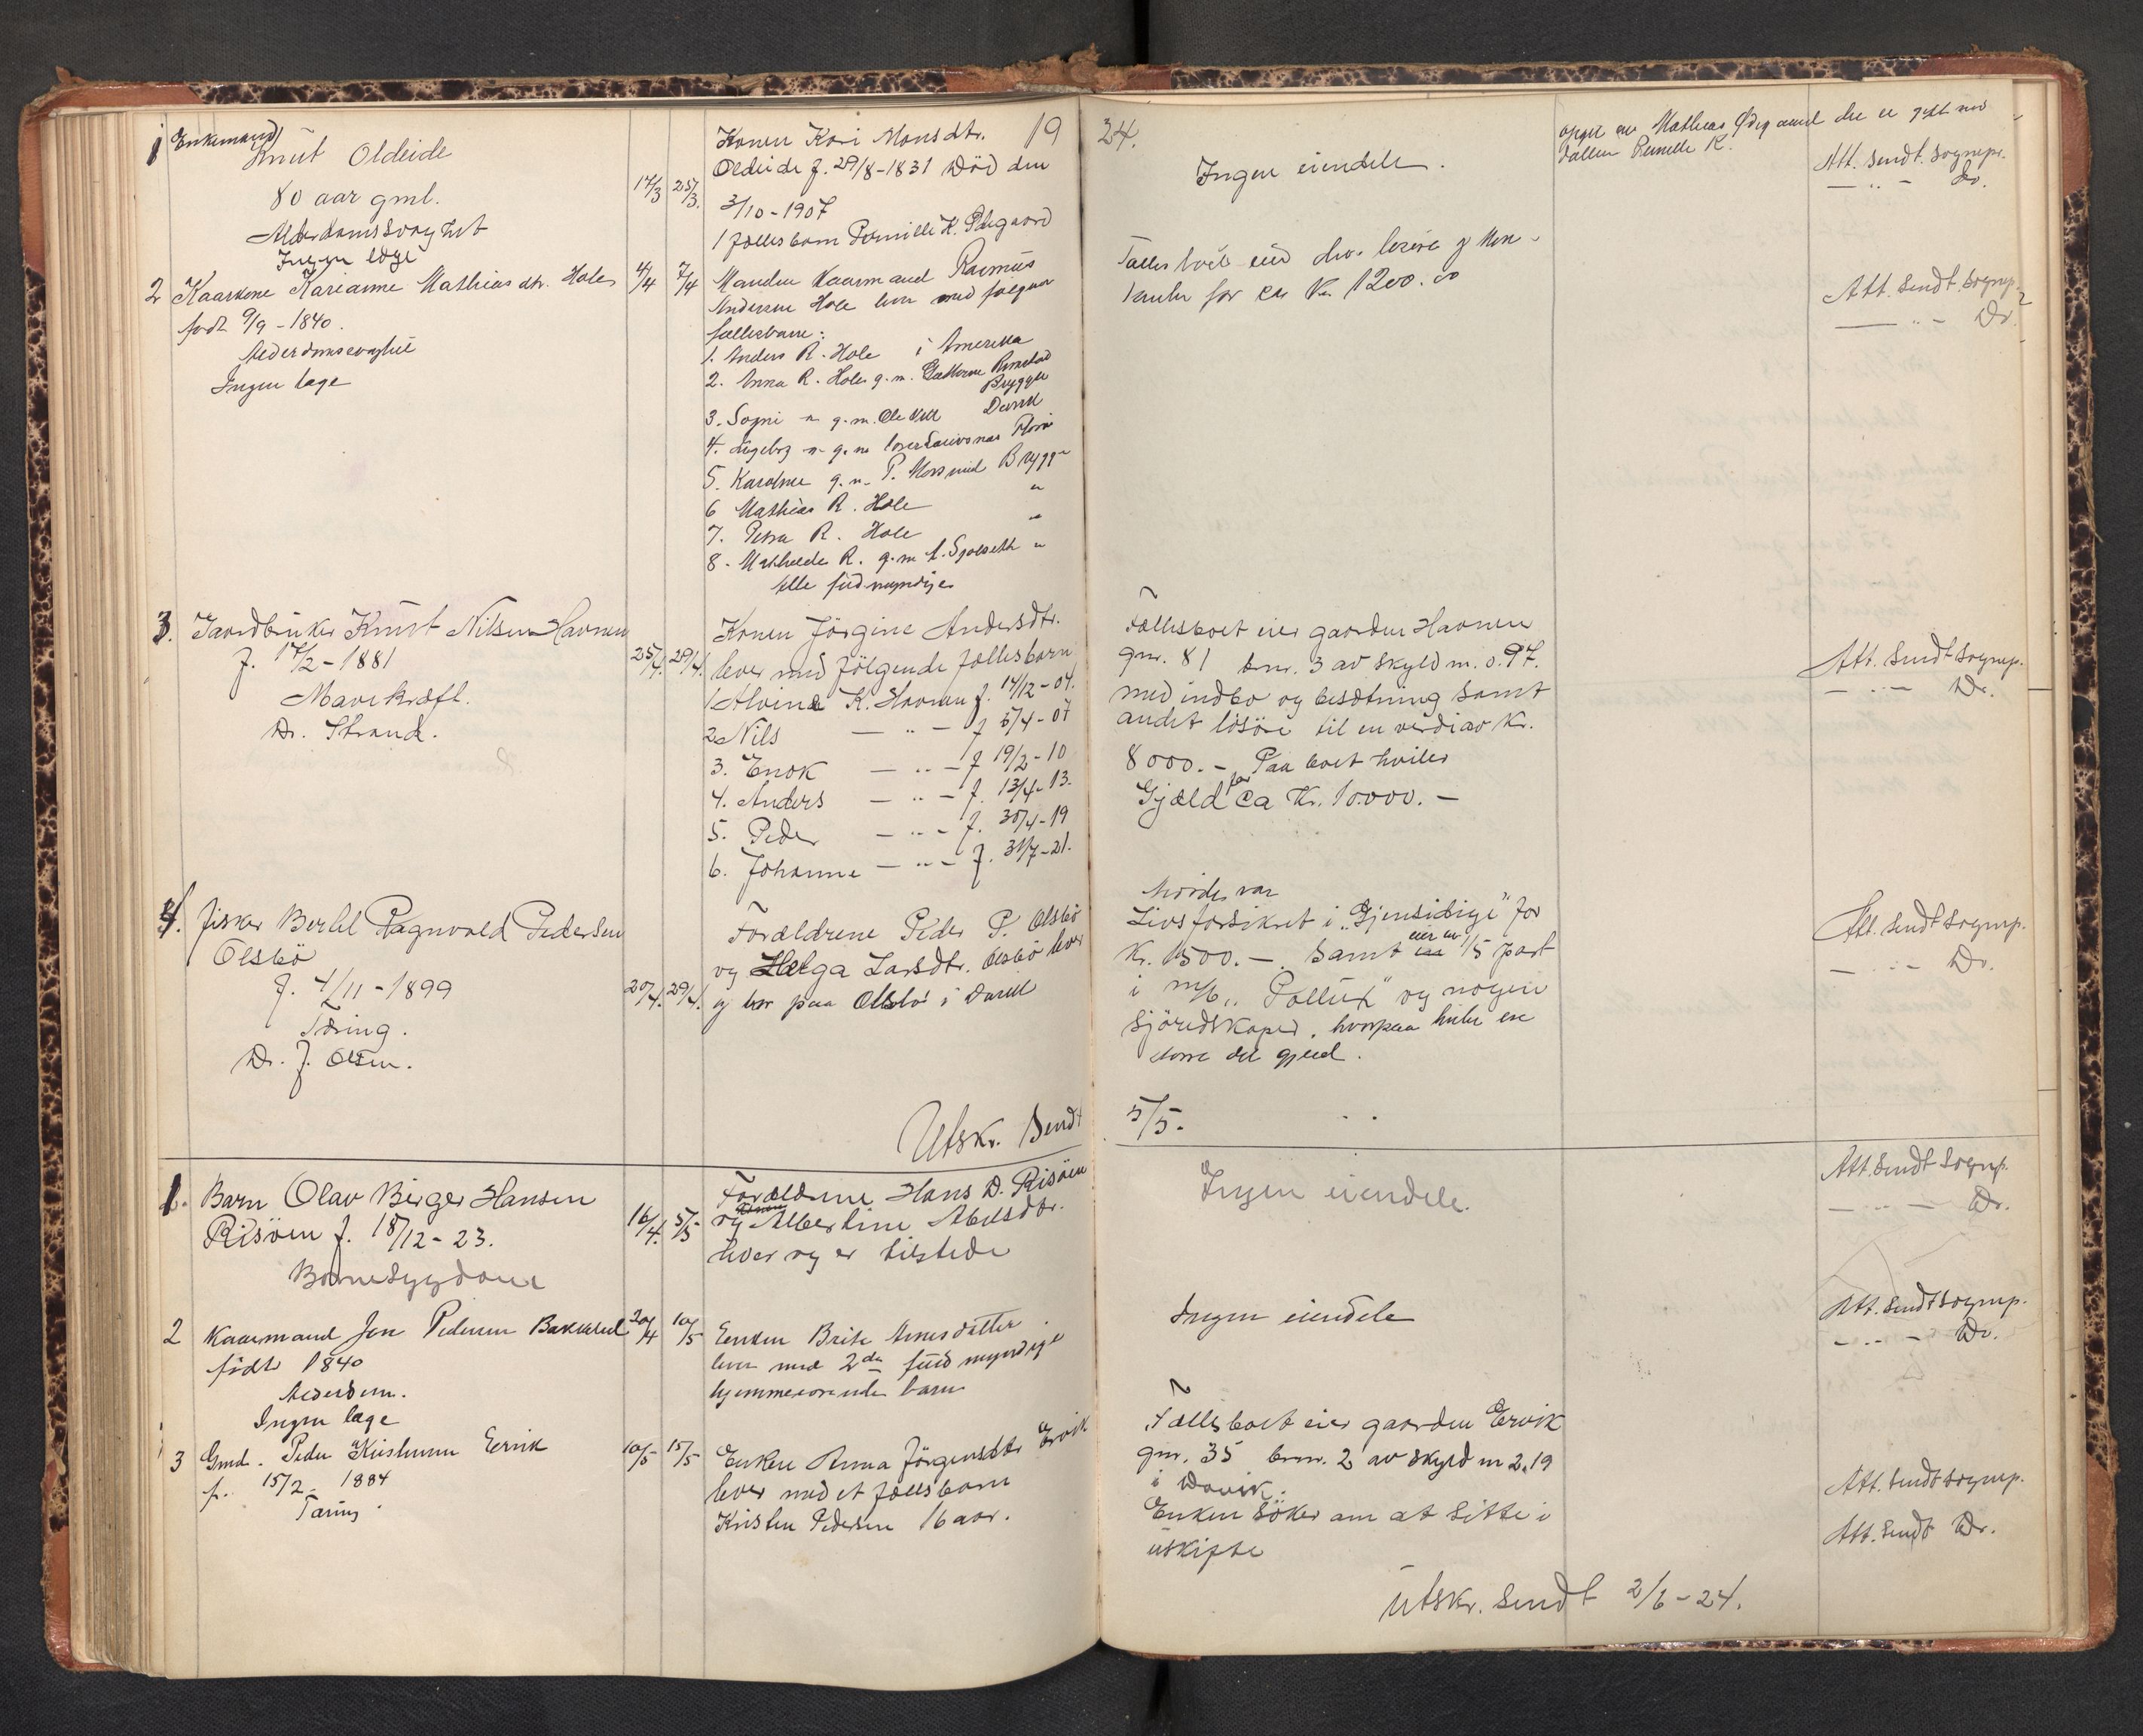 19 24.
1 Enkemand
Knut Oldeide
80 aar gml.
Alderdomssvaghet
Ingen læge
17/3 25/3.
Konen Kari Monsdtr.
Oldeide f. 29/8-1831 Död den
3/10-1907
1 fællesbarn Pernille K.
Ingen eiendele.
opgit av Mathias og
datter Pernille K.
Att. sendt sognepr.
— " — Dr.
2 Kaarkone Karianne Mathiasdtr. Hole
født 9/9-1840.
Alderdomssvaghet
Ingen læge
4/4 7/4
Manden Kaarmand Rasmus
Andersen Hole lever med følgende
fællesbarn:
1. Anders R. Hole i Amerika
2. Anna R. Hole g.m.
Brygge
3. Sogni " g.m. Ole
4. Ingeborg " g.m.
5. Karoline g.m. P. Brygge
6 Mathias R. Hole "
7. Petra R. Hole "
8. Mathilde R. g.m. "
Alle fuldmyndige
Fællesboet eier div. løsøre og
for ca Kr. 1200.00
Att. sendt sognep.
— " — Dr.
3. Jordbruker Knut Nilsen Havnen
f. 17/2-1881
Mavekræft.
Dr. Strand.
25/4. 29/4.
Konen Jörgine Andersdtr.
lever med fölgende fællesbarn
1 Alvine K. Havnen f. 14/12-04.
2 Nils — " — f 5/4-07
3. Enok — " — f 19/2-10
4. Anders — " — f. 13/4-13.
5. Peder — " — f. 30/4-19
6. Johanne — " — f. 31/7-21.
Fællesboet eier gaarden Havnen
gnr. 81 bnr. 3 av skyld m. 0.97.
med indbo og besætning samt
andet lösöre til en værdi av Kr.
8000.- Paa boet hviler
Gjæld for ca Kr. 10.000.-
Att. sendt sognep.
— " — Dr.
4. Fisker Bertel Ragnvald Pedersen
Olsbö
f. 4/11-1899
Tæring.
Dr. J. Olsen.
20/4. 29/4.
Forældrene Peder P. Olsbö
og Helga Larsdtr. Olsbö lever
og bor paa Olsbö i
Avdöde var
Livsforsikret i "Gjensidige" for
Kr. 1500.-. Samt eier en 1/5 part
i m/b "Pollux" og nogen
sjöredskaper, hvorpaa hviler en
del gjæld.
Att. sendt sognep.
— " — Dr.
Utskr. sendt 5/5.
1. Barn Olav Birger Hansen
Risöen f. 18/12-23.
Barnesygdom
16/4. 5/5
Forældrene Hans D. Risöen
og Albertine Abelsdtr.
lever og er tilstede
Ingen eiendele.
Att. sendt sognep.
— " — Dr.
2 Kaarmand Jon Pedersen
født 1840
Alderdom.
Ingen læge
20/4 10/5
Enken Brite Arnesdatter
lever med 2de fuldmyndige
hjemmeværende barn
Ingen eiendele
Att. sendt sognep.
— " — Dr.
3 Gmd. Peder Kristensen Ervik
f. 15/2-1884
Tæring
10/5 15/5
Enken Anna Jörgensdtr Ervik
lever med et fællesbarn
Kristen Pedersen 16 aar.
Fællesboet eier gaarden Ervik
gnr. 35 bnr. 2 av skyld m 2.19
i Davik.
Enken söker om at sitte i
uskifte
Att. sendt sognep.
Att. sendt Dr.
Utskr. sendt 2/6-24.